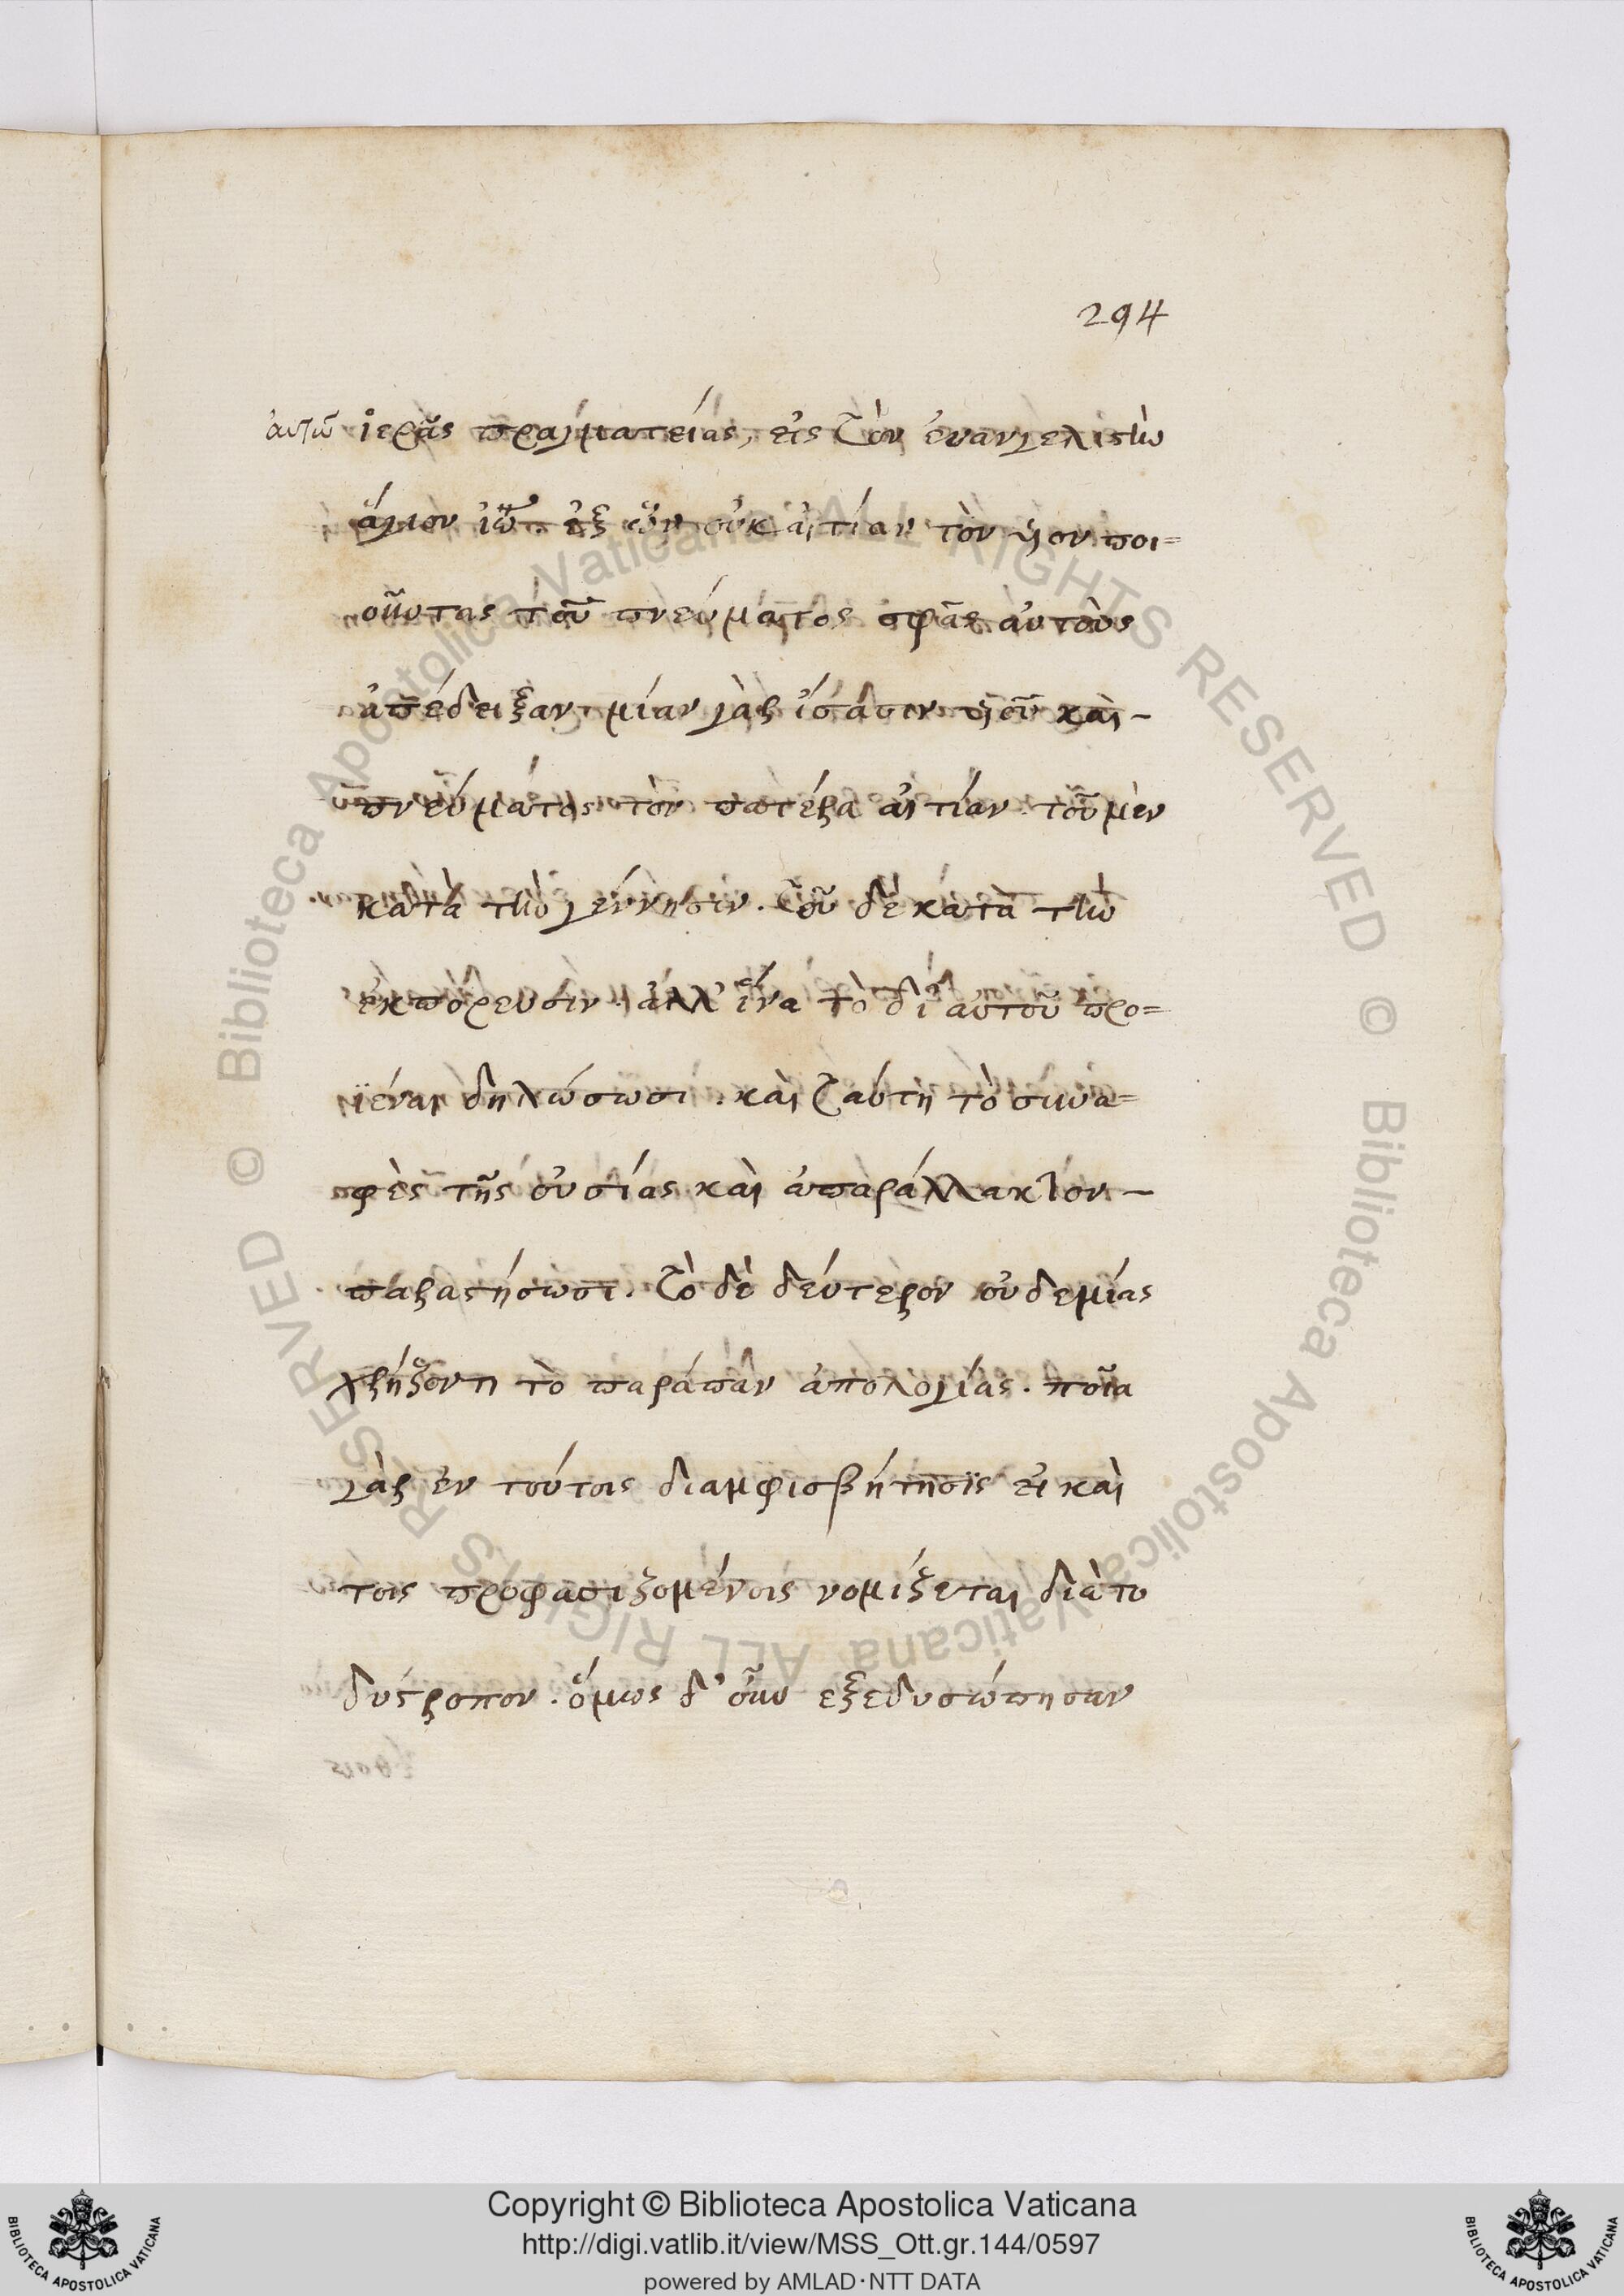 294
αὐτῶ ἱερᾶς πραγματείας, εἰς τὸν ἐυαγγελιστὴν
ἅγιον ἰω ἐξ ὧν οὐκ ἀιτίαν τὸν ὑιον ποι=
οῦντας τοῦ πνεύματος σφᾶς ἀυτοὺς
ἀπέδειξαν μίαν γὰρ ἴσασιν ὑιοῦ καὶ -
πνεύματος τὸν πατέρα ἀιτίαν τοῦ μὲν
κατὰ τὴν γέννησιν. τοῦ δὲ κατὰ τὴν
ἐκπόρευσιν. ἀλλ' ἵνα τὸ δι αὐτοῦ προ=
ϊέναι δηλώσωσι. καὶ ταύτη τὸ συνα=
φὲς τῆς οὐσίας καὶ ἀπαράλλακτον -
παραστήσωσι. τὸ δὲ δεύτερον οὐδεμίας
χρήζον τι τὸ παράπαν ἀπολογίας. ποία
γὰρ ἐν τούτοις διαμφισβήτησϊς ἐι καὶ
τοις προφασιζομένοις νομίζεται διὰ το
δύστροπον. ὅμως δ' οὖν εξεδυσώπησαν
Copyright © Biblioteca Apostolica Vaticana
http://digi.vatlib.it/view/MSS_Ott.gr.144/0597
powered by AMLAD·NTT DATA
BIBLIOTECA APOSTOLICA VATICANA
BIBLIOTECA APOSTOLICA VATICANA
© Biblioteca Apostolica Vaticana ALL RIGHTS RESERVED
© Biblioteca Apostolica Vaticana ALL RIGHTS RESERVED